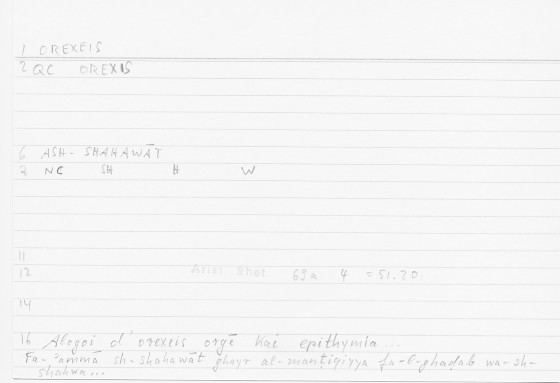 1 OREXEIS
2 QC OREXIS
6 ASH- SHAHAWĀT
2 NC SH H W
11
12 Arist Rhet 69a 4 = 51.20
14
16 Alogoi d' orexeis orgē kai epithymia...
14 Fa-'ammā sh-shahawāt ghayr al-manṭiqiyya fa-l-ghadab wa-sh-
shahwa...